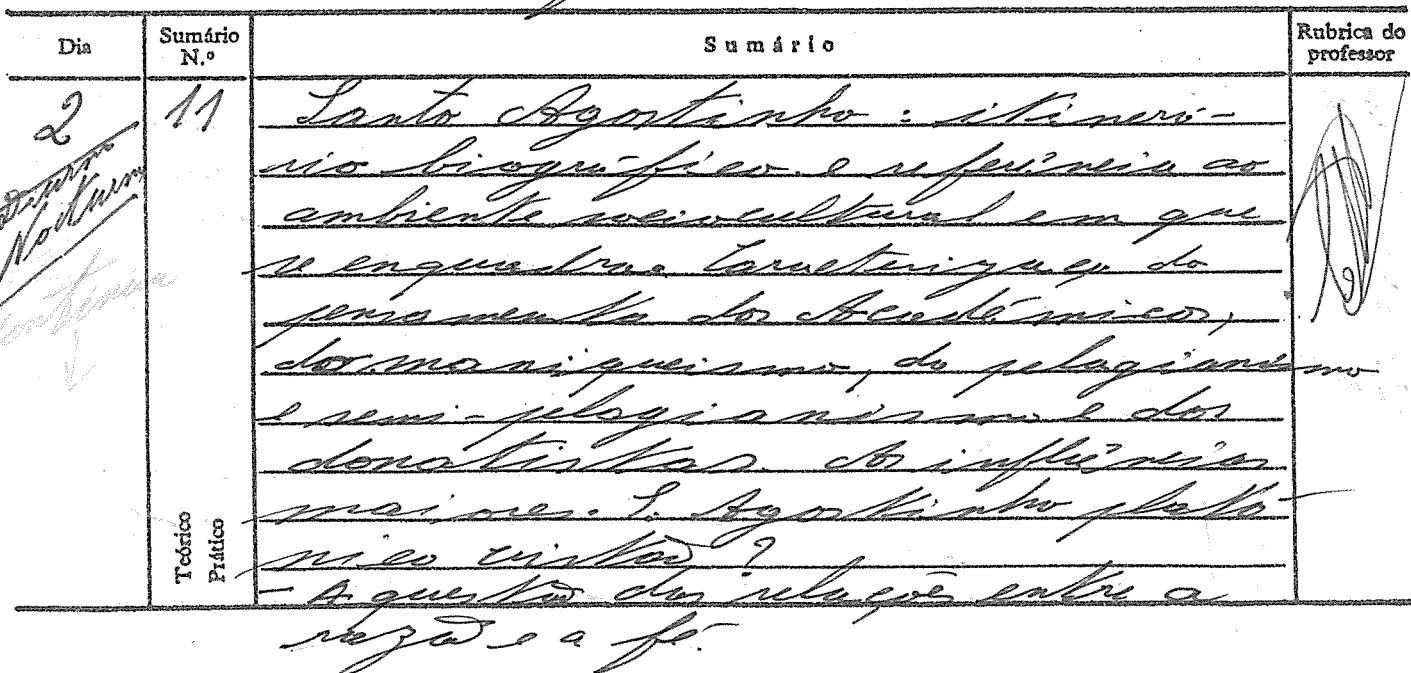 Dia
Sumário N.º
Sumário
Rubrica do professor
2
Diurno
Nocturno
11
Teórico
Prático
Santo Agostinho: itinerá-
rio biográfico e referência ao
ambiente sociocultural em que
se enquadra. Caracterização do
pensamento dos Académicos,
dos maniqueismo, do pelagianismo
e semi-pelagianismo e dos
donatistas. As influências
maiores. S. Agostinho plató-
nico cristão?
- A questão das relações entre a
razão e a fé.